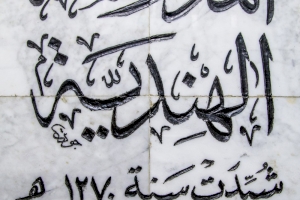 الهندية
شُيّدَتْ سَنَة ١٢٧٠ هـ